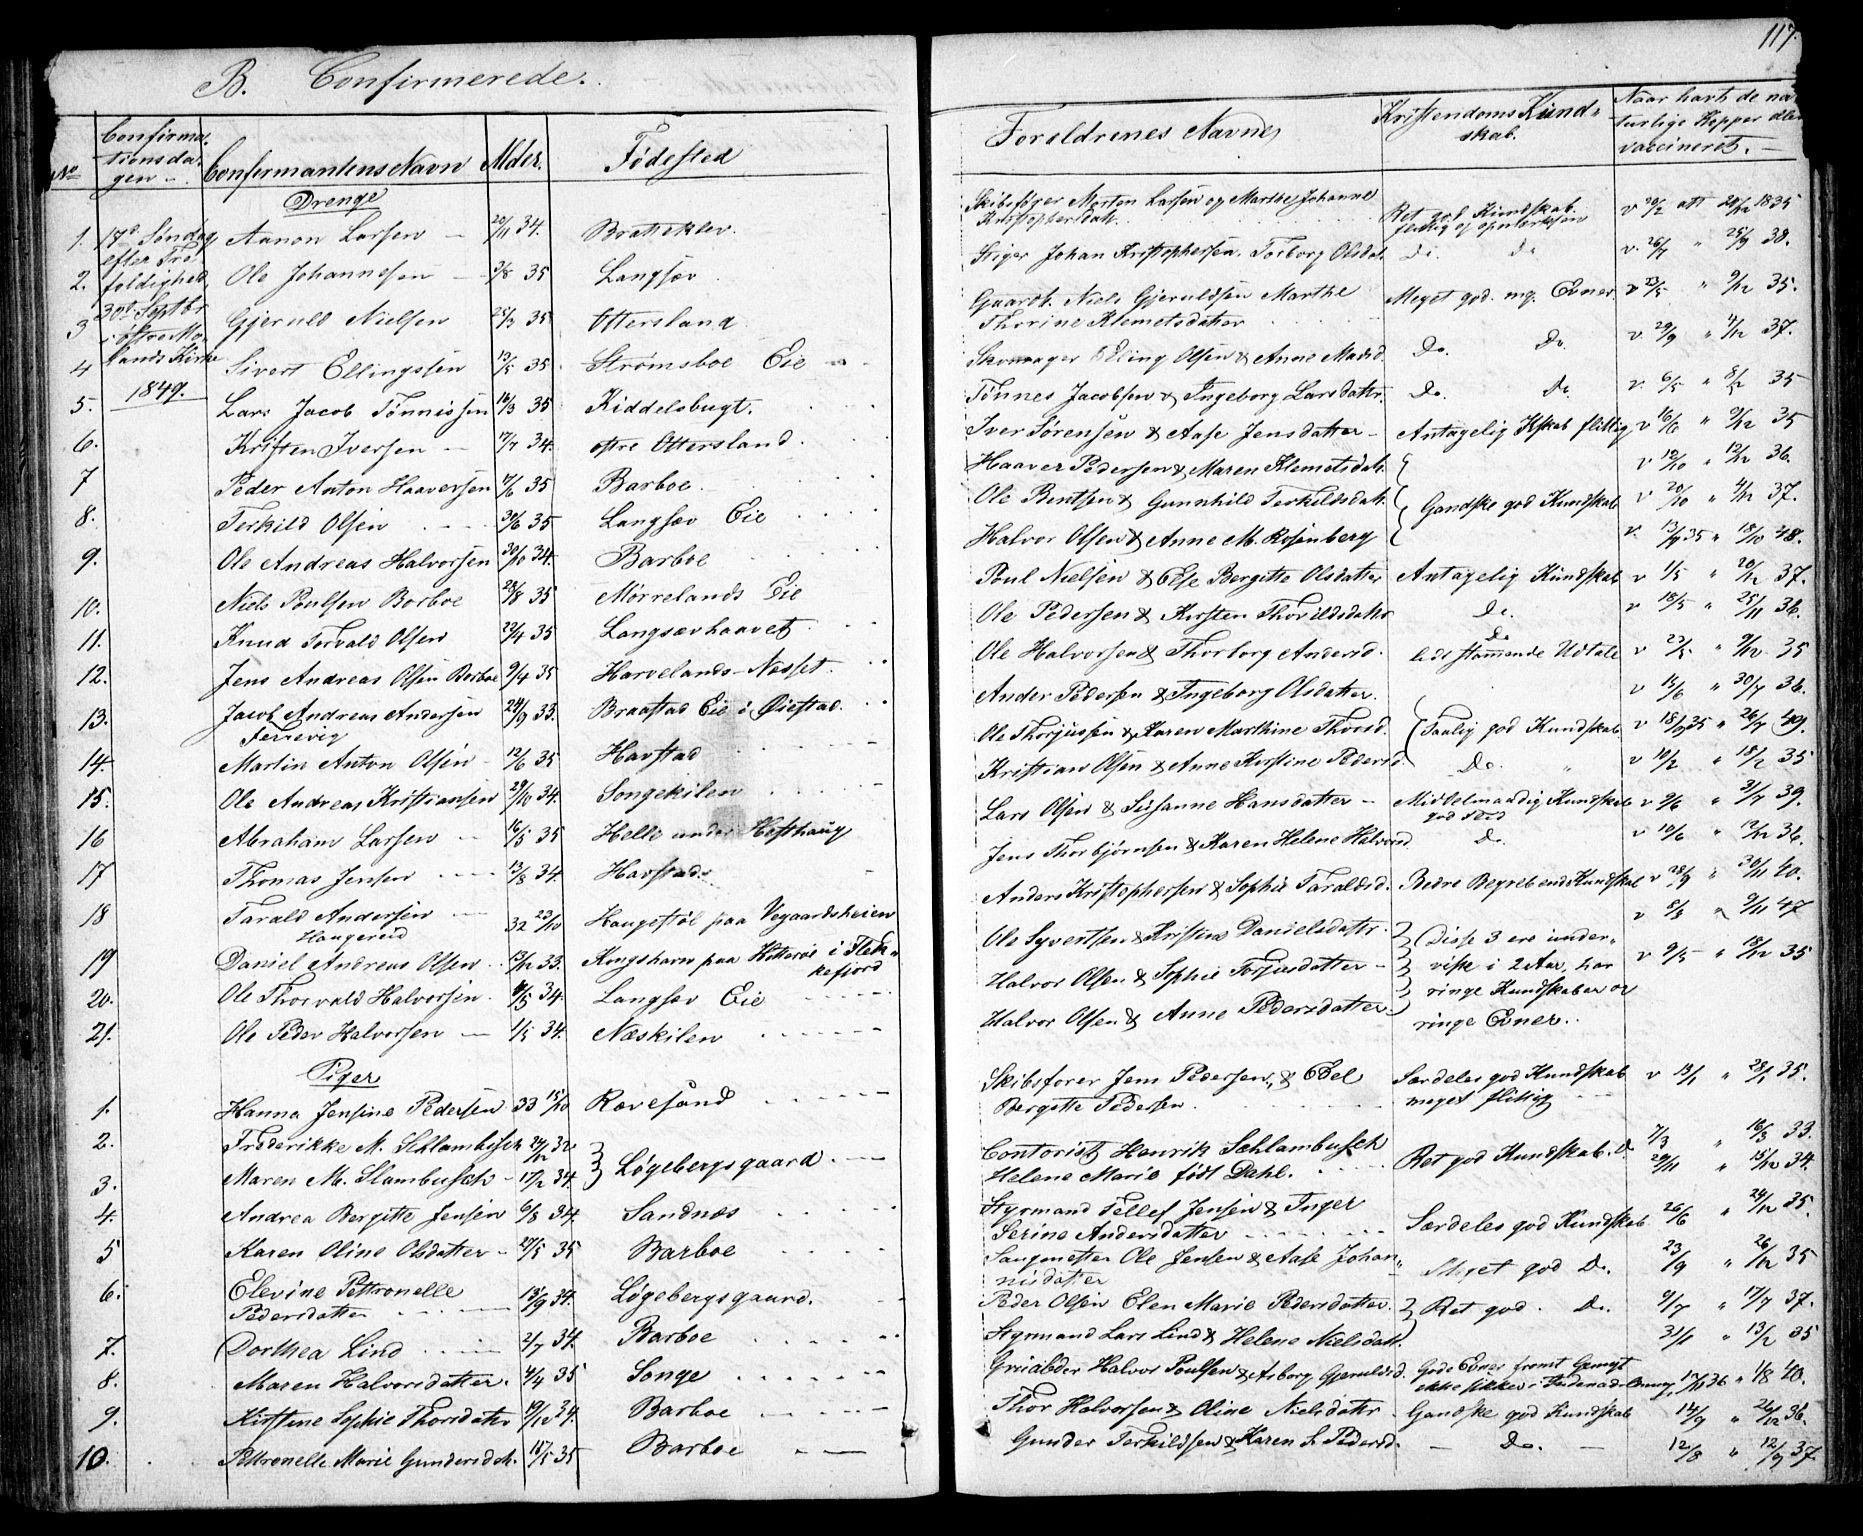 117.
B. Confirmerede.
No Confirmationsdagen Confirmantens Navn Alder. Fødested
Forældrenes Navne Kristendoms Kundskab. Naar havt de naturlige Kopper eller vaccineret.
Drenge
17d Søndag efter Trefoldighed, 30t Septbr i østre Molands Kirke 1849.
1. Aanon Larsen 20/11 34. Bratteklev
Skibsfører Morten Larsen og Marthe Johanne Kristophersdatt. Ret god Kundskab
2. Ole Johannesen 3/8 35 Langsæv
Stiger Johan Kristophersen, Torborg Olsdat. Do. Do v. 26/7 " 25/9 38.
3 Gjeruld Nielsen 25/3 35 Ottersland
Gaardb. Niels Gjeruldsen Marthe Thorine Klemetsdatter Meget god. mg. Evner v 23/5 " 9/12 35.
4 Sivert Ellingssen 13/5 35 Strømsboe Eie
Skomager Elling Olsen & Anne Madsd. Do. Do. v 29/9 " 4/12 37.
5. Lars Jacob Tønnissen 16/3 35 Kiddelsbugt.
Tønnes Jacobsen & Ingeborg Larsdatter. Do. Do. v. 6/5 " 8/2 35
6. Kristen Iversen 17/7 34. østre Ottersland.
Iver Sørensen & Aase Jensdatter Antagelig Kskab flittig v 16/6 " 9/12 35
7 Peder Anton Haaversen 17/6 35 Barboe
Haaver Pedersen & Maren Klemetsdatt. v 12/10 " 12/12 36.
8. Terkild Olsen 30/6 35 Langsæv Eie
Ole Bentsen & Gunnhild Terkildsdatt. Gandske god Kundskab v 20/10 " 4/12 37.
9. Ole Andreas Halvorsen 30/10 34. Barboe
Halvor Olsen & Anne M. Rosenberg v. 13/9 35 " 18/10 48.
10. Niels Poulsen Borboe 28/8 35 Mørrelands Eie
Poul Nielsen & Else Bergitte Olsdatter Antagelig Kundskab v 1/5 " 20/12 37.
11. Knud Torvald Olsen 22/4 35 Langsævhaavet
Ole Pedersen & Kirsten Thorildsdatter Do. v 18/5 " 25/11 36.
12. Jens Andreas Olsen Borboe 9/4 35 Harvelands-Nesset
Ole Halvorsen & Thorborg Andersd. Do lidt stammende Udtale v 23/5 " 9/12 35
13. Jacob Andreas Andersen Terrevig 24/9 33. Braastad Eie i Øiestad.
Ander Pedersen & Ingeborg Olsdatter. v 15/6 " 30/7 36.
14. Martin Anton Olsen 12/6 35 Havstad
Ole Thorjussen & Karen Marthine Thorsd. Taalig god Kundskab v 18/9 35 " 26/7 49.
15. Ole Andreas Kristiansen 29/10 34. Songekilen
Kristian Olsen & Anne Kirstine Pedersd. Do. " v 10/2 " 18/2 35
16 Abraham Larsen 16/5 35 Helle under Hesthaug
Lars Olsen & Susanne Hansdatter Middelmaadig Kundskab v 9/6 " 3/7 39.
17 Thomas Jensen 13/8 34. Havstad
Jens Thorbjørnsen & Karen Helene Halvorsd Do. v 10/6 " 12/12 36.
18 Tarald Andersen Haugereid 32 23/10 Haugestøl paa Vegaardsheien
Anders Kristophersen & Sophie Taraldsd. Bedre Begreb end Kundskab v 28/9 " 30/11 40.
19 Daniel Andreas Olsen 13/12 33. Kongshavn paa Hitterøe i Flekkefjord
Ole Syvertsen & Kristine Danielsdatter. v 8/8 9/11 47
20. Ole Thorvald Halvorsen 4/5 34. Langsæv Eie
Halvor Olsen & Sophie Torjusdatter v 9/5 " 18/12 35
21. Ole Peder Halvorsen 1/5 34. Næskilen
Halvor Olsen & Anne Pedersdatter.
Disse 3 ere underviste i 2 Aar, har ringe Kundskaber og ringe Evner.
Piger
1. Hanna Jensine Pedersen 33 15/10 Rævesand
Skibsfører Jens Pedersen, & Edel Bergitte Pedersen Særdeles god Kundskab meget flittig v 13/1 " 28/1 35.
2. Frederikke M. Schlambusch 24/12 32
3. Maren M. Slambusch 17/2 34. Løgebergsgaard.
Contorist Henrik Schlambusch Helene Marie født Dahl. Ret god Kundskab. Do 7/3 " 16/3 33.
29/11 " 15/12 34.
4. Andrea Bergitte Jensen 6/8 34. Sandnæs
Styrmand Tellef Jensen & Inger Serine Andersdatter Særdeles god Kundskab 26/6 " 24/12 35.
5 Karen Oline Olsdatter 27/5 35 Barboe
Saugmester Ole Jensen & Aase Johannisdatter Meget god Do. 23/9 " 26/12 35
6. Elevine Pettronelle Pedersdatter 18/9 34. Løgebergsgaard.
Peder Olsen Elen Marie Pedersdatter. Ret god. Do. 9/7 " 17/7 37.
7. Dorthea Lind 2/7 34. Barboe
Styrmand Lars Lind & Helene Nielsdatt. 31/1 " 13/2 35
8. Maren Halvorsdatter. 4/4 35 Songe
Halvor Poulsen & Asborg Gjeruldsd. Gode Evner fromt Gemyt 1/8 40.
9. Kirstine Sophie Thorsdatter 19/12 34. Barboe
Thor Halvorsen & Oline Nielsdatter Gandske god Kundskab 14/9 " 26/12 36.
10. Pettronelle Marie Gundersdatt. 18/5 35 Barboe
Gunder Terkildsen & Karen S. Pedersd. Do. 12/8 " 12/9 37.